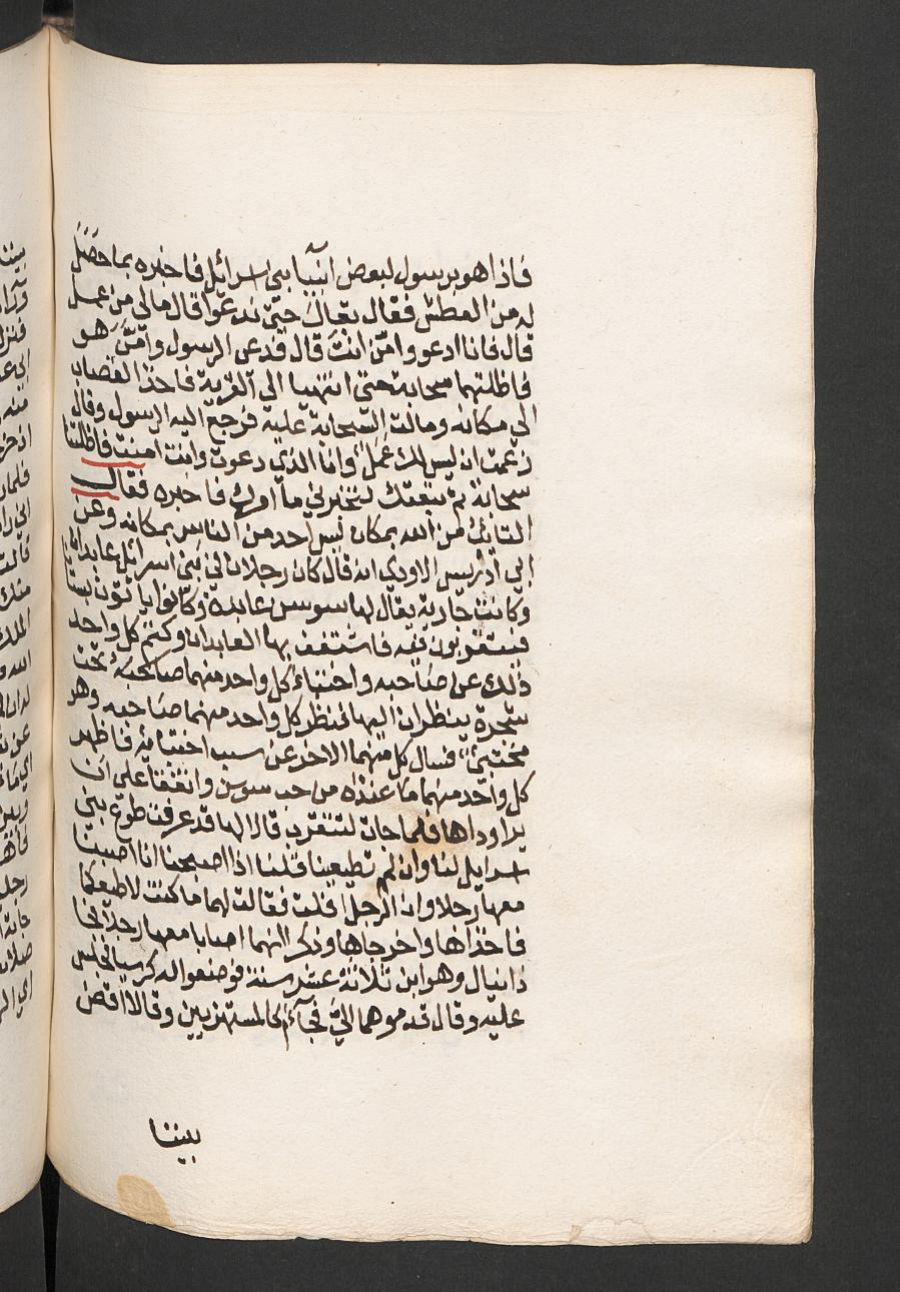 فاذا هو برسول لبعض انبيآ بني اسرائل فاخبره بما حَصَلَ
له من العطش فقال تعالَ حتى ندعوا قال مالي من عمل
قال فانا ادعو وامّن انتَ قال فدعى الرسول وامّنَ هو
فاظلتهما سحابة حتى انتهيا الى القرية فاخذ القصاب
الى مكانه ومالت السّحابة عليه فرجع اليه الرسول وقال
زعمت ان ليس لك عَمَلٌ وانا الذي دعوت وانت امنت فاظلتنا
سحابة ثم تبعتك لتخبرني ما امرك فاخبره فقال
التايبُ من الله بمكان ليس احد من الناس بمكانه وعن
ابي ادريس الاودي انه قال كان رجلان في بني اسرائل عابدان
وكانت جارية يقال لها سوسن عابدة وكانوا ياتون بستانا
فيتقربون فيه فاشتغف بها العابدان وكتم كل واحد
ذلك عن صاحبه واختباءَ كل واحد منهما صاحبَهُ تحت
شجرة ينظران اليها فنظر كل واحد منهما صاحبه وهو
مختبيءٌ فسال كل منهما الاخر عن سبب اختبائه فاظهر
كل واحد منهما ما عنده من حب سوسن واتفقا على ان
يراوداها فلما جات لتتقرب قالا لها قد عرفت طوع بني
اسرايل لنا وان لم تطيعينا قلنا اذا اصبحنا انا اصبنا
معها رجلا وان الرجل افلت فقالت لهما ما كنت لاطيعكما
فاخذاها واخرجاها وذكر انهما اصابا معها رجلا فجا
دانيال وهو ابن ثلاثة عشر سنة فوضعوا له كرسيا فجلس
عليه وقال قدموهما اليّ فجآء كالمستهزيين وقالا اقض
بيننا